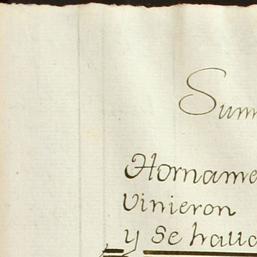 Sum
Horname
vinieron
y se hallo